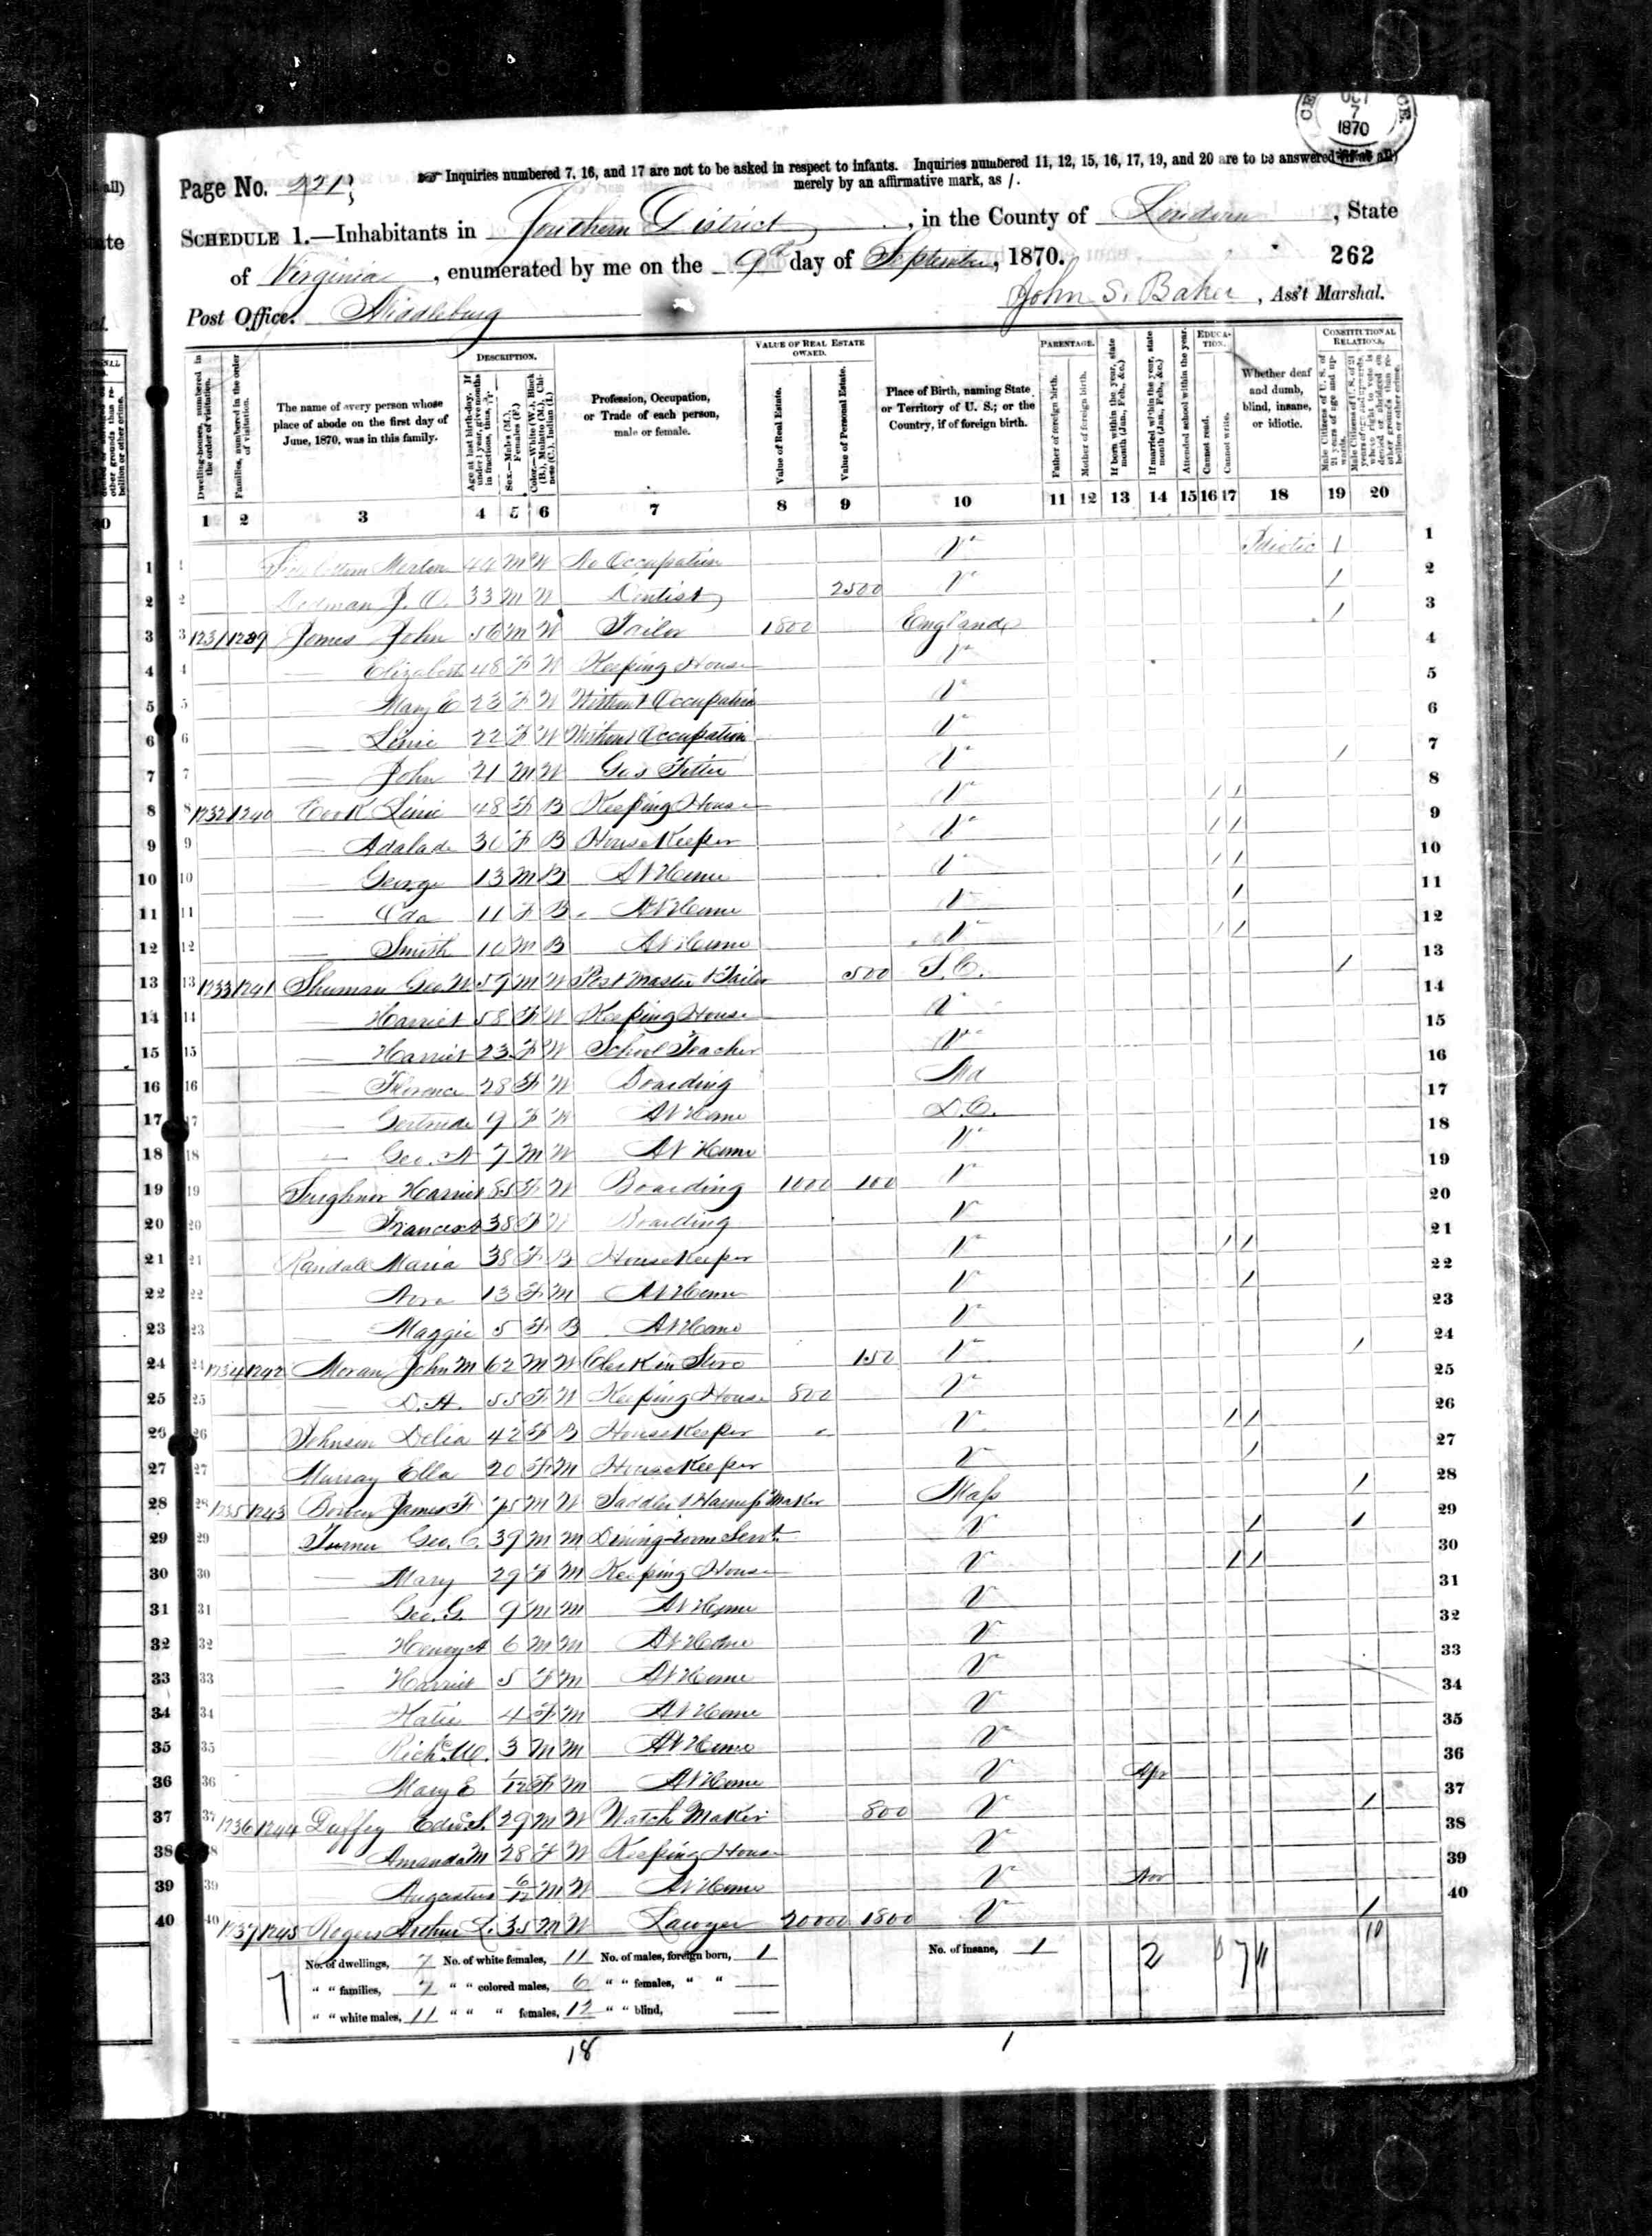 OCT
7
1870
Inquiries numbered 7, 16, and 17 are not to be asked in respect to infants. Inquiries numbered 11, 12, 15, 16, 17, 19, and 20 are to be answered (if at all)
merely by an affirmative mark, as /.
Page No. 221
SCHEDULE 1.—Inhabitants in Southern District, in the County of Loudoun, State
of Virginia, enumerated by me on the 9th day of September, 1870. 262
Post Office: Middleburg John S. Baker, Ass't Marshal.
Dwelling-houses, numbered in the order of visitation.
Families, numbered in the order of visitation.
The name of every person whose place of abode on the first day of June, 1870, was in this family.
DESCRIPTION.
Age at last birth-day. If under 1 year, give months in fractions, thus,
Sex.—Males (M.), Females (F.)
Color.—White (W.), Black (B.), Mulatto (M.), Chinese (C.), Indian (I.)
Profession, Occupation, or Trade of each person, male or female.
VALUE OF REAL ESTATE OWNED.
Value of Real Estate.
Value of Personal Estate.
Place of Birth, naming State or Territory of U. S.; or the Country, if of foreign birth.
PARENTAGE.
Father of foreign birth.
Mother of foreign birth.
If born within the year, state month (Jan., Feb., &c.)
If married within the year, state month (Jan., Feb., &c.)
Attended school within the year.
EDUCATION.
Cannot read.
Cannot write.
Whether deaf and dumb, blind, insane, or idiotic.
CONSTITUTIONAL RELATIONS.
Male Citizens of U. S. of 21 years of age and upwards.
Male Citizens of U. S. of 21 years of age and upwards, whose right to vote is denied or abridged on other grounds than rebellion or other crime.
1 2 3 4 5 6 7 8 9 10 11 12 13 14 15 16 17 18 19 20
1 44 M W No Occupation V Idiotic / 1
2 J. O. 33 M W Dentist 2500 V / 2
3 1231 1239 James John 56 M W Tailor 1800 England / 3
4 — Elizabeth 48 F W Keeping House V 4
5 — Mary E 23 F W Without Occupation V 5
6 — 22 F W Without Occupation V 6
7 — John 21 M W Gas Fitter V / 7
8 1232 1240 48 F B Keeping House V / / 8
9 — Adalade 30 F B House Keeper V / / 9
10 — George 13 M B At Home V / / 10
11 — 11 F B At Home V / 11
12 — Smith 10 M B At Home V / / 12
13 1233 1241 Shuman Geo. W 59 M W Post Master & Tailor 500 / 13
14 — Harriet 58 F W Keeping House V 14
15 — Harriet 23 F W School Teacher V 15
16 — Florence 28 F W Boarding Md 16
17 — Gertrude 9 F W At Home D.C. 17
18 — Geo. A 7 M W At Home V 18
19 Harriet 85 F W Boarding 1000 100 V 19
20 — 38 F W Boarding V 20
21 Randall Maria 38 F B House Keeper V / / 21
22 — 13 F M At Home V / 22
23 — Maggie 5 F B At Home V 23
24 1234 1242 Moran John M 62 M W Clerk in Store 150 V / 24
25 — D. A. 55 F W Keeping House 800 V 25
26 Johnson Delia 42 F B House Keeper V / / 26
27 Murray Ella 20 F M House Keeper V / 27
28 1235 1243 James F. 75 M W Saddle & Harness Maker Mass / 28
29 Turner Geo. C. 39 M M Dining-room Servt. V / / 29
30 — Mary 29 F M Keeping House V / / 30
31 — Geo. G. 9 M M At Home V 31
32 — Henry A 6 M M At Home V 32
33 — Harriet 5 F M At Home V 33
34 — Katie 4 F M At Home V 34
35 — 3 M M At Home V 35
36 — Mary E 1/12 F M At Home V Apr 36
37 1236 1244 Duffey 29 M W Watch Maker 800 V / 37
38 — Amanda M 28 F W Keeping House V 38
39 — Augustus 6/12 M W At Home V Nov 39
40 1237 1245 Rogers Arthur L. 35 M W Lawyer 20000 1800 V / 40
No. of dwellings, 7 No. of white females, 11 No. of males, foreign born, 1 No. of insane, 1 2 7 11 10
" " families, 7 " " colored males, 6 " " females, " " —
" " white males, 11 " " " females, 12 " " blind, —
18 1